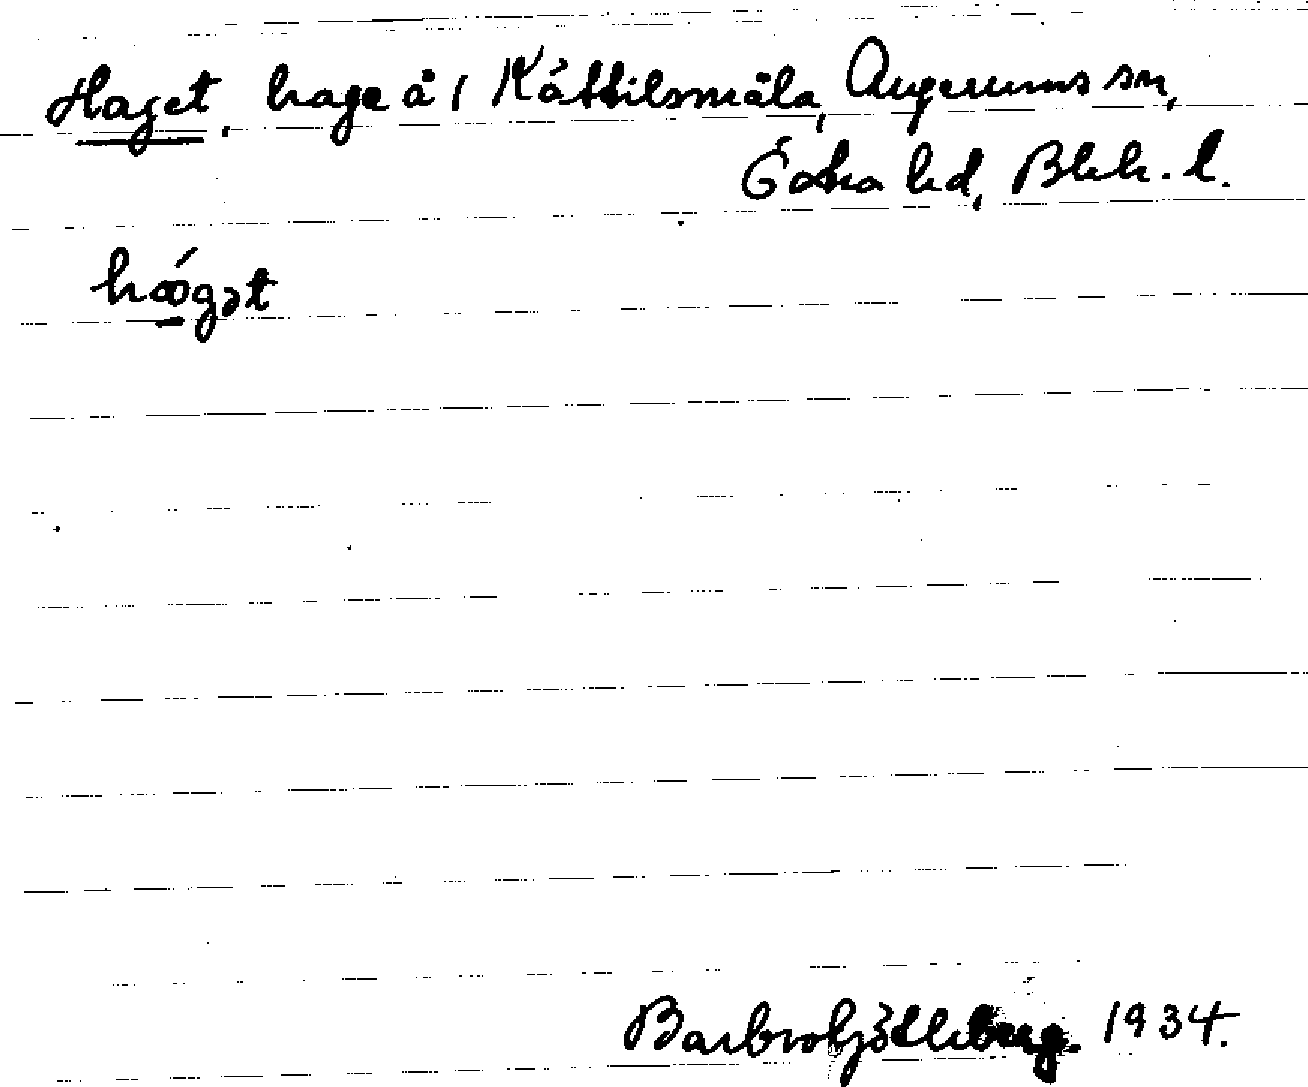 Haget, hage å 1 Kättilsmåla, Augerums sn,
Östra hd, Blek. l.
hǿgət
Barbro Götlberg. 1934.